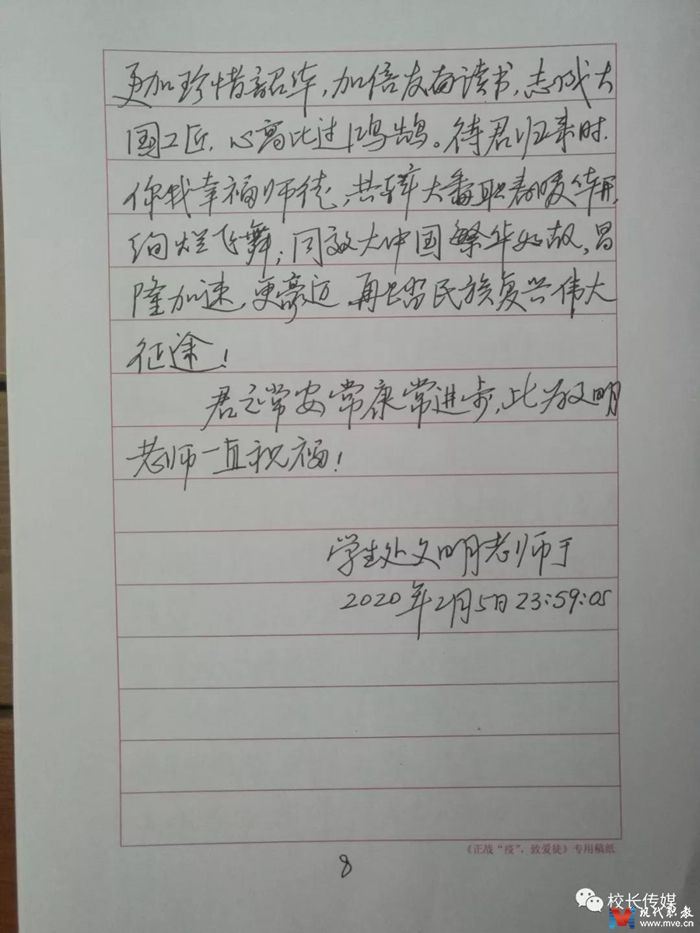 更加珍惜韶华，加倍发奋读书，志成大
国工匠，心高比过鸿鹄。待君归来时，
你我幸福师徒，共萃大番职春暖华开，
绚烂飞舞；同效大中国繁华如故，昌
隆加速，更豪迈，再上路民族复兴伟大
征途！
君之常安常康常进步，此为文明
老师一直祝福！
学生处文明老师于
2020年2月5日23:59:05
《正战“疫”，致爱徒》专用稿纸
8
校长传媒
现代职教
www.mve.cn